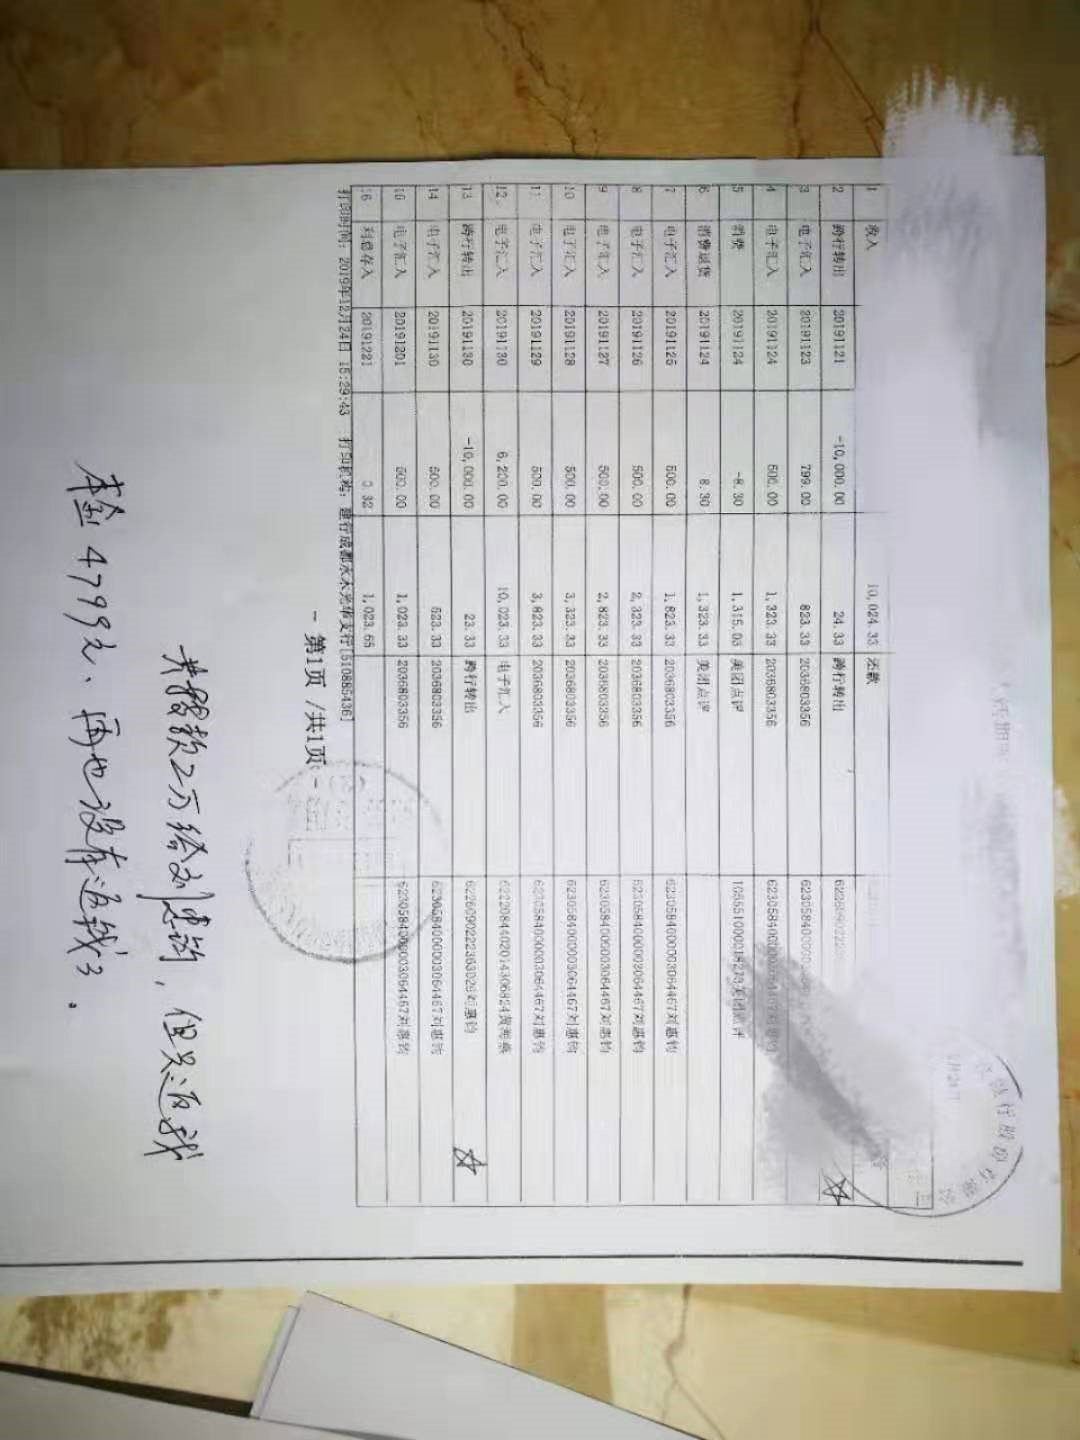 1 收入 10,024.33 还款
2 跨行转出 20191121 -10,000.00 24.33 跨行转出
3 电子汇入 20191123 799.00 823.33 2036803356
4 电子汇入 20191124 500.00 1,323.33 2036803356
5 消费 20191124 -8.30 1,315.03 美团点评
6 消费退货 20191124 8.30 1,323.33 美团点评
7 电子汇入 20191125 500.00 1,823.33 2036803356 6230584000003064467刘惠钧
8 电子汇入 20191126 500.00 2,323.33 2036803356 6230584000003064467刘惠钧
9 电子汇入 20191127 500.00 2,823.33 2036803356 6230584000003064467刘惠钧
10 电子汇入 20191128 500.00 3,323.33 2036803356 6230584000003064467刘惠钧
11 电子汇入 20191129 500.00 3,823.33 2036803356 6230584000003064467刘惠钧
12 电子汇入 20191130 6,200.00 10,023.33 电子汇入
13 跨行转出 20191130 -10,000.00 23.33 跨行转出 刘惠钧
14 电子汇入 20191130 500.00 523.33 2036803356 6230584000003064467刘惠钧
15 电子汇入 20191201 500.00 1,023.33 2036803356 6230584000003064467刘惠钧
16 利息存入 20191221 0.32 1,023.65
打印时间：2019年12月24日 15:29:43 打印机构：建行成都水木光华支行[510885436]
- 第1页 /共1页 -
共 款2万给刘惠钧，但只返我
本金4799元、再也没有返我了.